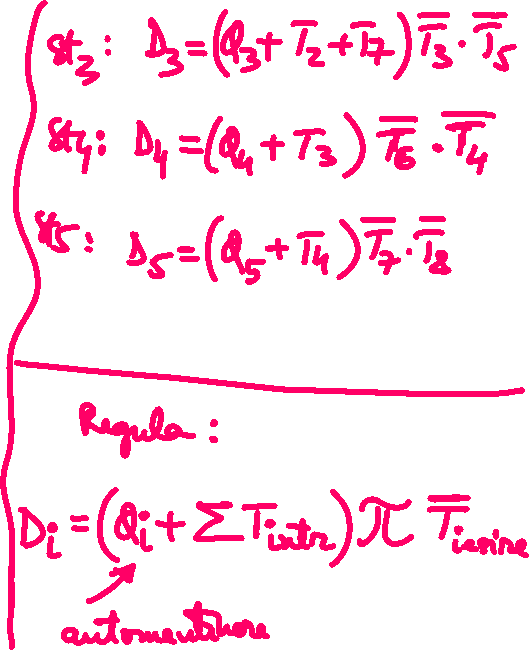 St₃: D₃=(Q₃+T₂+T₇)T̅₃·T̅₅
St₄: D₄=(Q₄+T₃)T̅₆·T̅₄
St₅: D₅=(Q₅+T₄)T̅₇·T̅₈
Regula:
Dᵢ=(Qᵢ+ΣT_intr)π T̅_iesire
automentinere